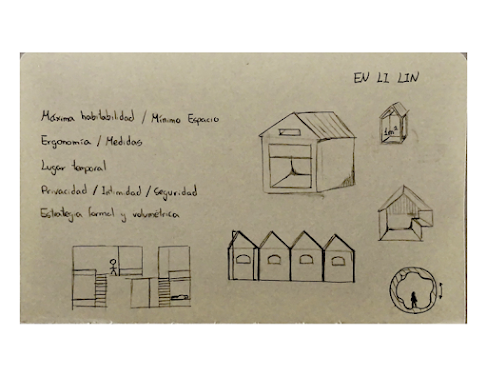 EN LI LIN
Máxima habitabilidad / Mínimo Espacio
Ergonomía / Medidas
Lugar temporal
Privacidad / Intimidad / Seguridad
Estrategia formal y volumétrica
1m³